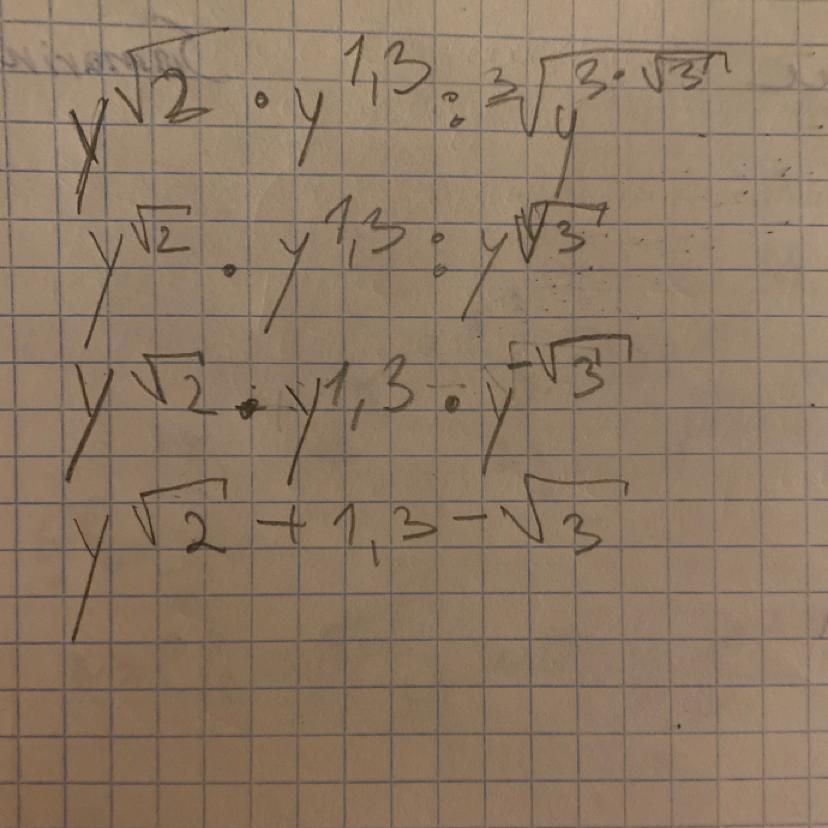 y^√2 · y^1,3 : ³√(y^(3·√3))
y^√2 · y^1,3 : y^√3
y^√2 · y^1,3 · y^-√3
y^(√2 + 1,3 - √3)